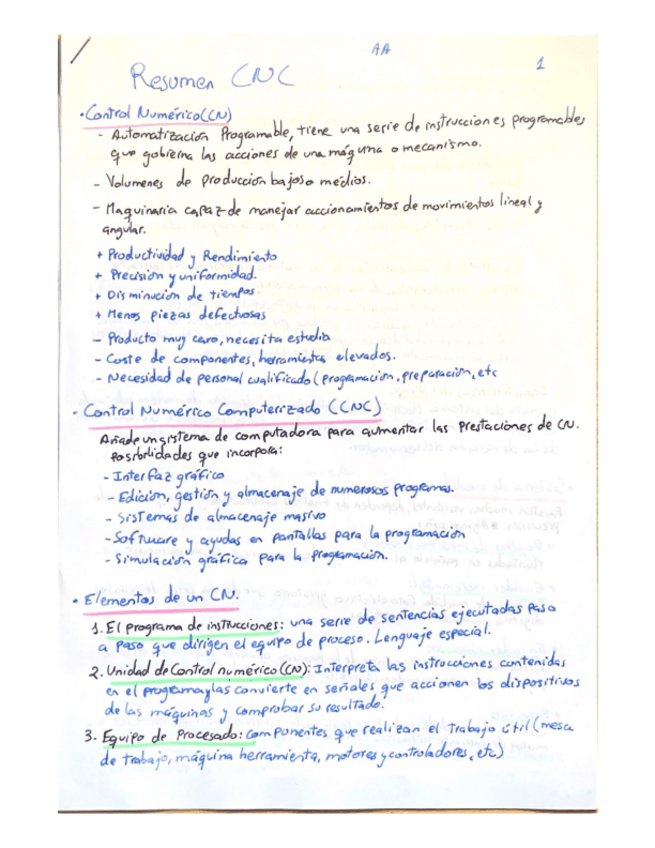 AA
1
Resumen CNC
• Control Numérico (CN)
- Automatización Programable, tiene una serie de instrucciones programables
que gobierna las acciones de una máquina o mecanismo.
- Volumenes de producción bajos o medios.
- Maquinaria capaz de manejar accionamientos de movimientos lineal y
angular.
+ Productividad y Rendimiento
+ Precisión y uniformidad.
+ Disminución de tiempos.
+ Menos piezas defectuosas
- Producto muy caro, necesita estudio
- Coste de componentes, herramientas elevados.
- Necesidad de personal cualificado (programación, preparación, etc
• Control Numérico Computerizado (CNC)
Añade un sistema de computadora para aumentar las prestaciones de CN.
Posibilidades que incorpora:
- Interfaz gráfico
- Edición, gestión y almacenaje de numerosos programas.
- Sistemas de almacenaje masivo
- Software y ayudas en pantallas para la programación
- Simulación gráfica para la programación.
• Elementos de un CN.
1. El programa de instrucciones: una serie de sentencias ejecutadas paso
a paso que dirigen el equipo de proceso. Lenguaje especial.
2. Unidad de Control numérico (CN): Interpreta las instrucciones contenidas
en el programa y las convierte en señales que accionen los dispositivos
de las máquinas y comprobar su resultado.
3. Equipo de Procesado: componentes que realizan el trabajo útil (mesa
de trabajo, máquina herramienta, motores y controladores, etc)